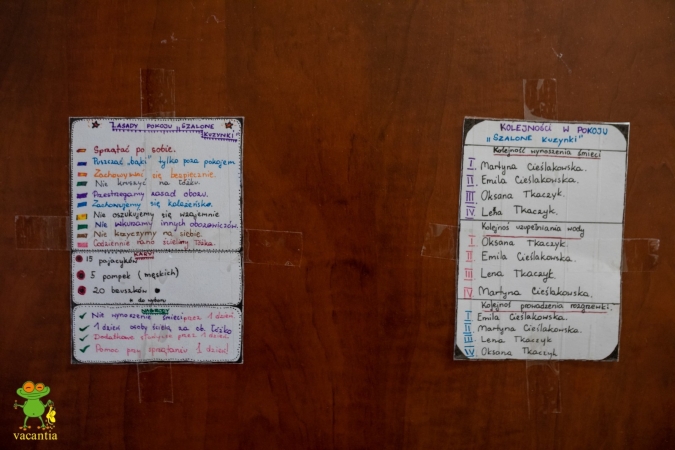 ZASADY POKOJU „SZALONE
KUZYNKI"
Sprzątać po sobie.
Puszczać „bąki" tylko poza pokojem
Zachowywać się bezpiecznie.
Nie kruszyć na łóżku.
Przestrzegamy zasad obozu.
Zachowujemy się koleżeńsko.
Nie oszukujemy się wzajemnie
Nie wkurzamy innych obozowiczów.
Nie krzyczymy na siebie.
Codziennie rano ścielimy łóżka.
KARY
15 pajacyków
5 pompek (męskich)
20 brzuszków
do wyboru
NAGRODY
Nie wynoszenie śmieci przez 1 dzień
1 dzień osoby ścielą za cb. łóżko
przez 1 dzień
Pomoc przy sprzątaniu 1 dzień!
KOLEJNOŚCI W POKOJU
„SZALONE KUZYNKI"
Kolejność wynoszenia śmieci
I. Martyna Cieślakowska.
II. Emila Cieślakowska.
III. Oksana Tkaczyk.
IV. Lena Tkaczyk.
Kolejność uzupełniania wody
I. Oksana Tkaczyk.
II. Emila Cieślakowska.
III. Lena Tkaczyk
IV. Martyna Cieślakowska.
Kolejność prowadzenia rozgrzewki.
I. Emila Cieślakowska.
II. Martyna Cieślakowska.
III. Lena Tkaczyk
IV. Oksana Tkaczyk
vacantia